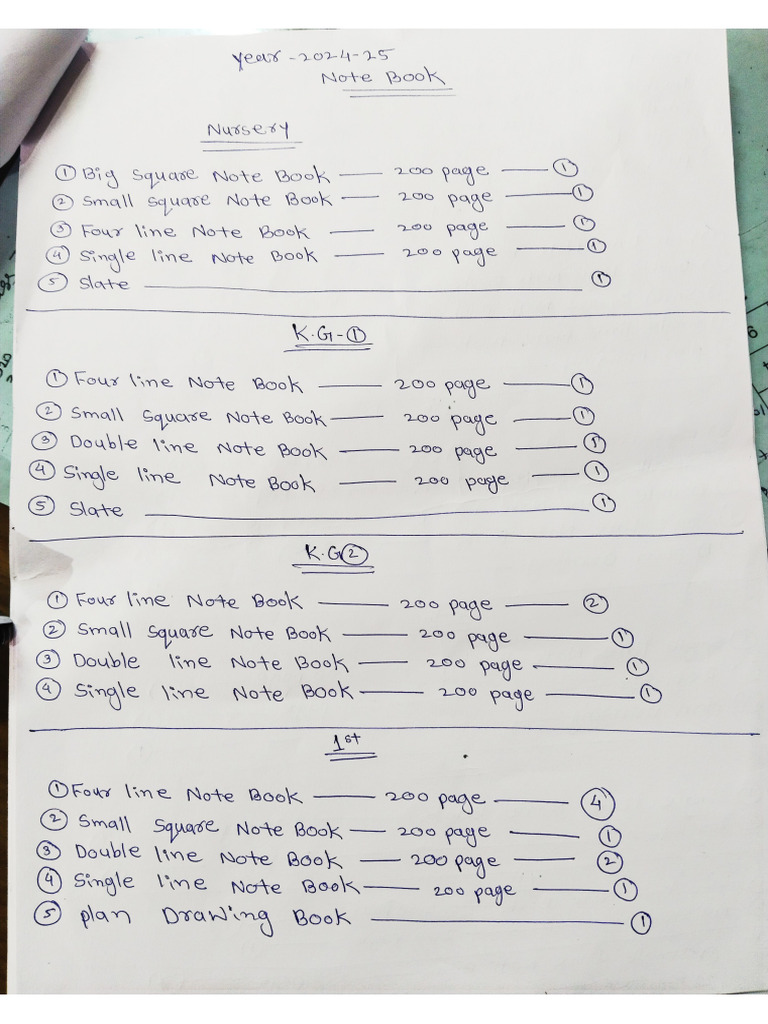 Year-2024-25
Note Book
Nursery
① Big Square Note Book — 200 page — ①
② Small Square Note Book — 200 page — ①
③ Four line Note Book — 200 page — ①
④ Single line Note Book — 200 page — ①
⑤ Slate — ①
K.G-①
① Four line Note Book — 200 page — ①
② Small Square Note Book — 200 page — ①
③ Double line Note Book — 200 page — ①
④ Single line Note Book — 200 page — ①
⑤ Slate — ①
K.G②
① Four line Note Book — 200 page — ②
② Small Square Note Book — 200 page — ①
③ Double line Note Book — 200 page — ①
④ Single line Note Book — 200 page — ①
1st
① Four line Note Book — 200 page — ④
② Small Square Note Book — 200 page — ①
③ Double line Note Book — 200 page — ②
④ Single line Note Book — 200 page — ①
⑤ plan Drawing Book — ①